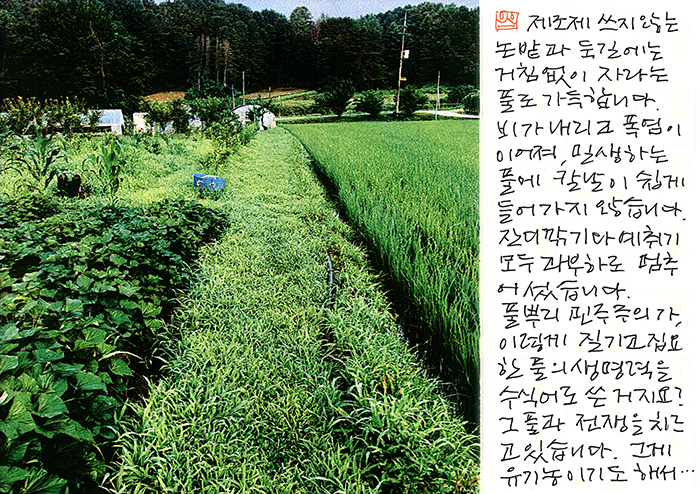 제초제 쓰지 않는
논밭과 둑길에는
거침없이 자라는
풀로 가득합니다.
비가 내리고 폭염이
이어져, 밀생하는
풀에 칼날이 쉽게
들어가지 않습니다.
잔디깎기나 예취기
모두 과부하로 멈추
어 섰습니다.
풀뿌리 민주주의가,
이렇게 질기고 집요
한 풀의 생명력을
수식어로 쓴 거지요?
그 풀과 전쟁을 치르
고 있습니다. 그게
유기농이기도 해서…